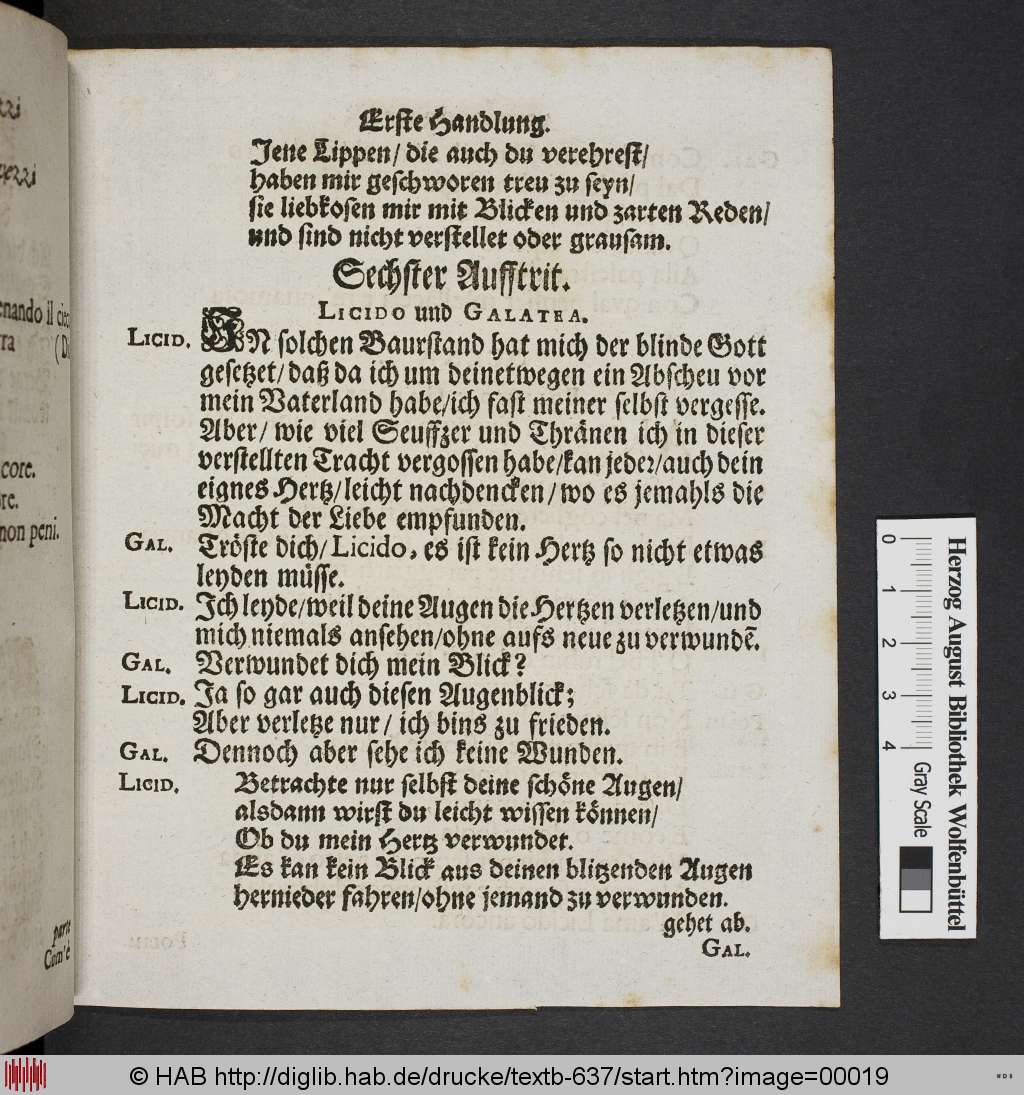 Erste Handlung.
Jene Lippen/ die auch du verehrest/
haben mir geschworen treu zu seyn/
sie liebkosen mir mit Blicken und zarten Reden/
und sind nicht verstellet oder grausam.
Sechster Aufftrit.
LICIDO und GALATEA.
LICID. IN solchen Baurstand hat mich der blinde Gott
gesetzet/ daß da ich um deinetwegen ein Abscheu vor
mein Vaterland habe/ich fast meiner selbst vergesse.
Aber/ wie viel Seuffzer und Thränen ich in dieser
verstellten Tracht vergossen habe/kan jeder/auch dein
eignes Hertz/leicht nachdencken/wo es jemahls die
Macht der Liebe empfunden.
GAL. Tröste dich/ Licido, es ist kein Hertz so nicht etwas
leyden müsse.
LICID. Ich leyde/weil deine Augen die Hertzen verletzen/und
mich niemals ansehen/ohne aufs neue zu verwundē.
GAL. Verwundet dich mein Blick?
LICID. Ja so gar auch diesen Augenblick;
Aber verletze nur/ ich bins zu frieden.
GAL. Dennoch aber sehe ich keine Wunden.
LICID. Betrachte nur selbst deine schöne Augen/
alsdann wirst du leicht wissen können/
Ob du mein Hertz verwundet.
Es kan kein Blick aus deinen blitzenden Augen
hernieder fahren/ohne jemand zu verwunden.
gehet ab.
GAL.
enando il
ra
core.
re.
non peni.
parte
Com'è
0 1 2 3 4
Gray Scale
Herzog August Bibliothek Wolfenbüttel
© HAB http://diglib.hab.de/drucke/textb-637/start.htm?image=00019
WDB